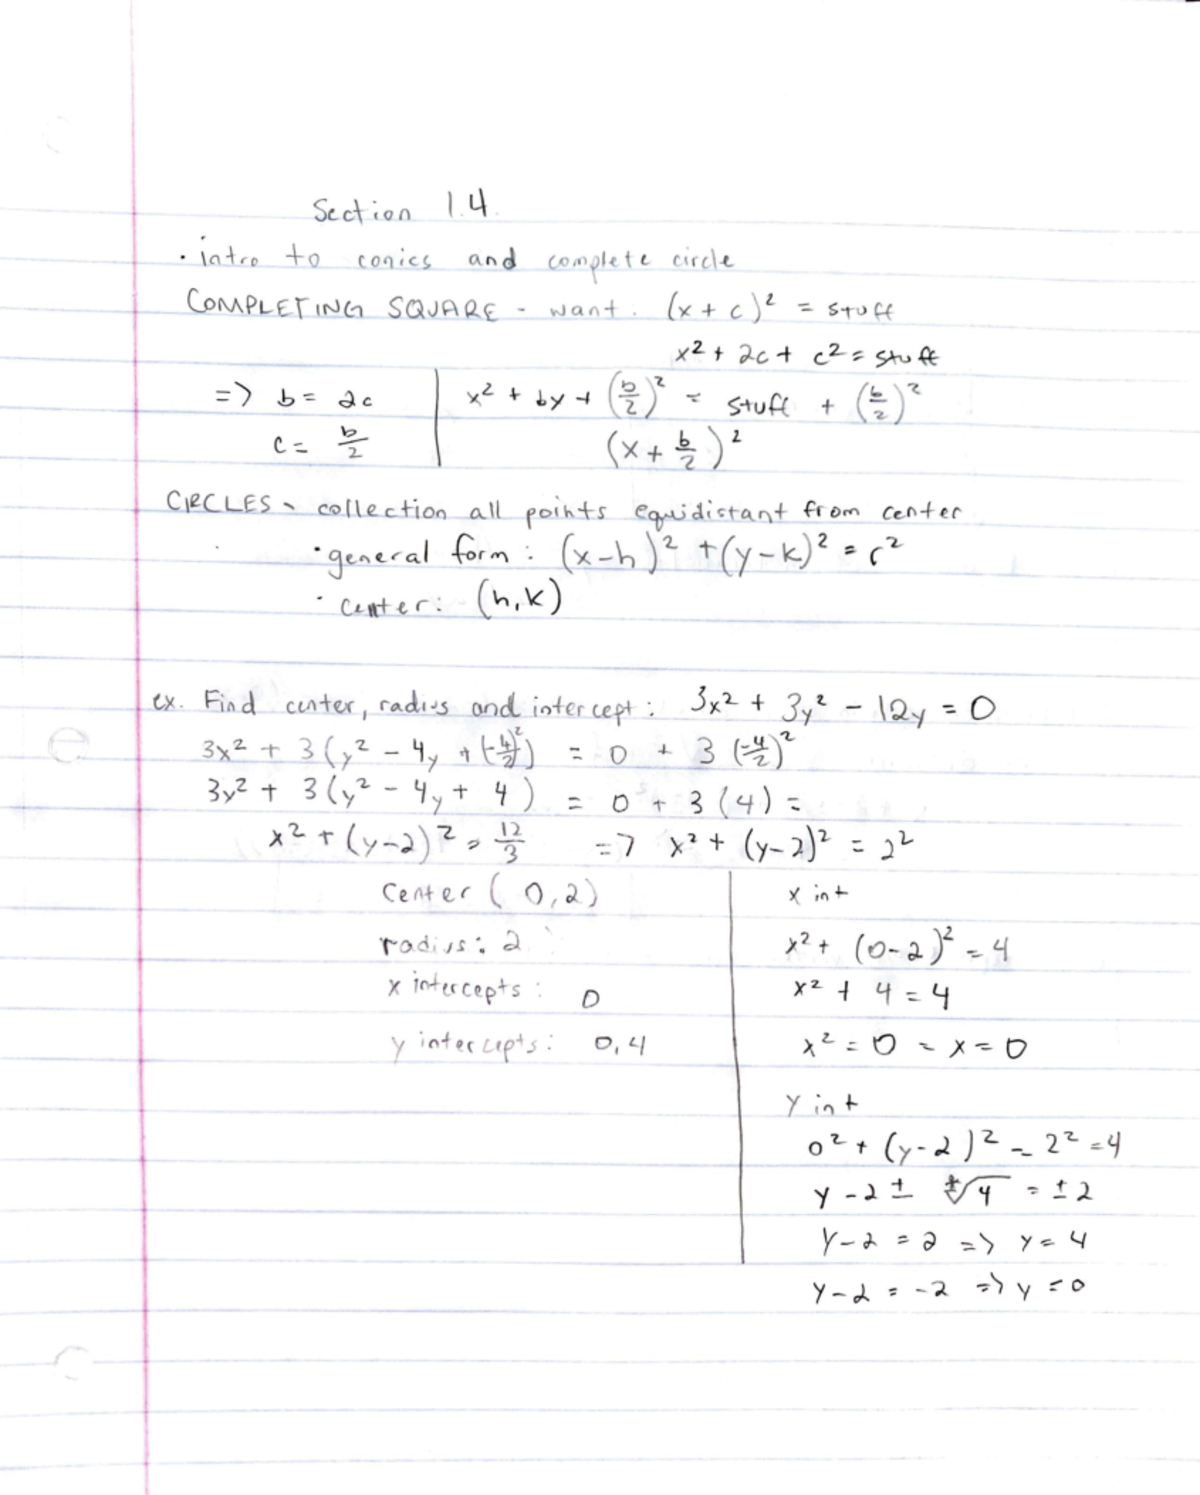 Section 1.4
• intro to conics and complete circle
COMPLETING SQUARE - want: (x + c)² = stuff
x² + 2c + c² = stuff
=> b = 2c | x² + by + (b/2)² = stuff + (b/2)²
c = b/2 | (x + b/2)²
CIRCLES - collection all points equidistant from center
• general form: (x-h)² + (y-k)² = r²
• center: (h,k)
ex. Find center, radius and intercept: 3x² + 3y² - 12y = 0
3x² + 3(y² - 4y + (-4/2)²) = 0 + 3(-4/2)²
3y² + 3(y² - 4y + 4) = 0 + 3(4) =
x² + (y-2)² = 12/3 => x² + (y-2)² = 2²
Center (0,2)
radius: 2
x intercepts: 0
y intercepts: 0,4
x int
x² + (0-2)² = 4
x² + 4 = 4
x² = 0 = x = 0
y int
0² + (y-2)² = 2² = 4
y - 2 ± ±√4 = ±2
y-2 = 2 => y = 4
y-2 = -2 => y = 0